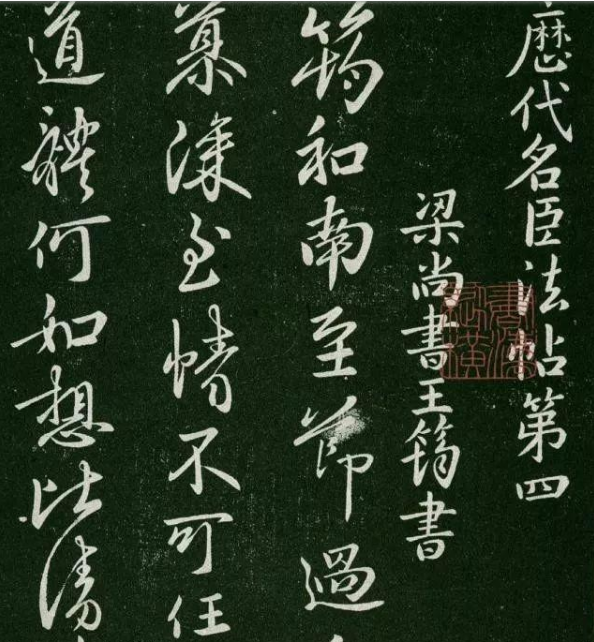 歷代名臣法帖第四
梁尚書王筠書
筠和南至節過
慕深至情不可任
道體何如想比清